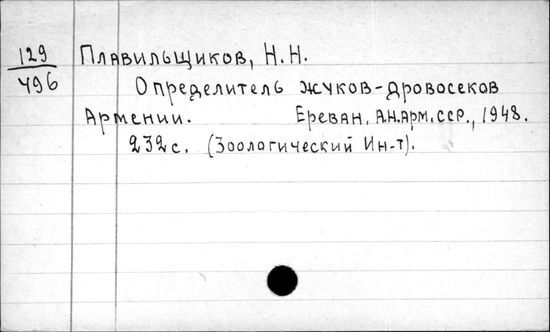 129 Плавильщиков, Н.Н.
496
Определитель жуков-дровосеков
Армении. Ереван, А.Н.Арм.ССР., 1948.
232с. (Зоологический Ин-т).